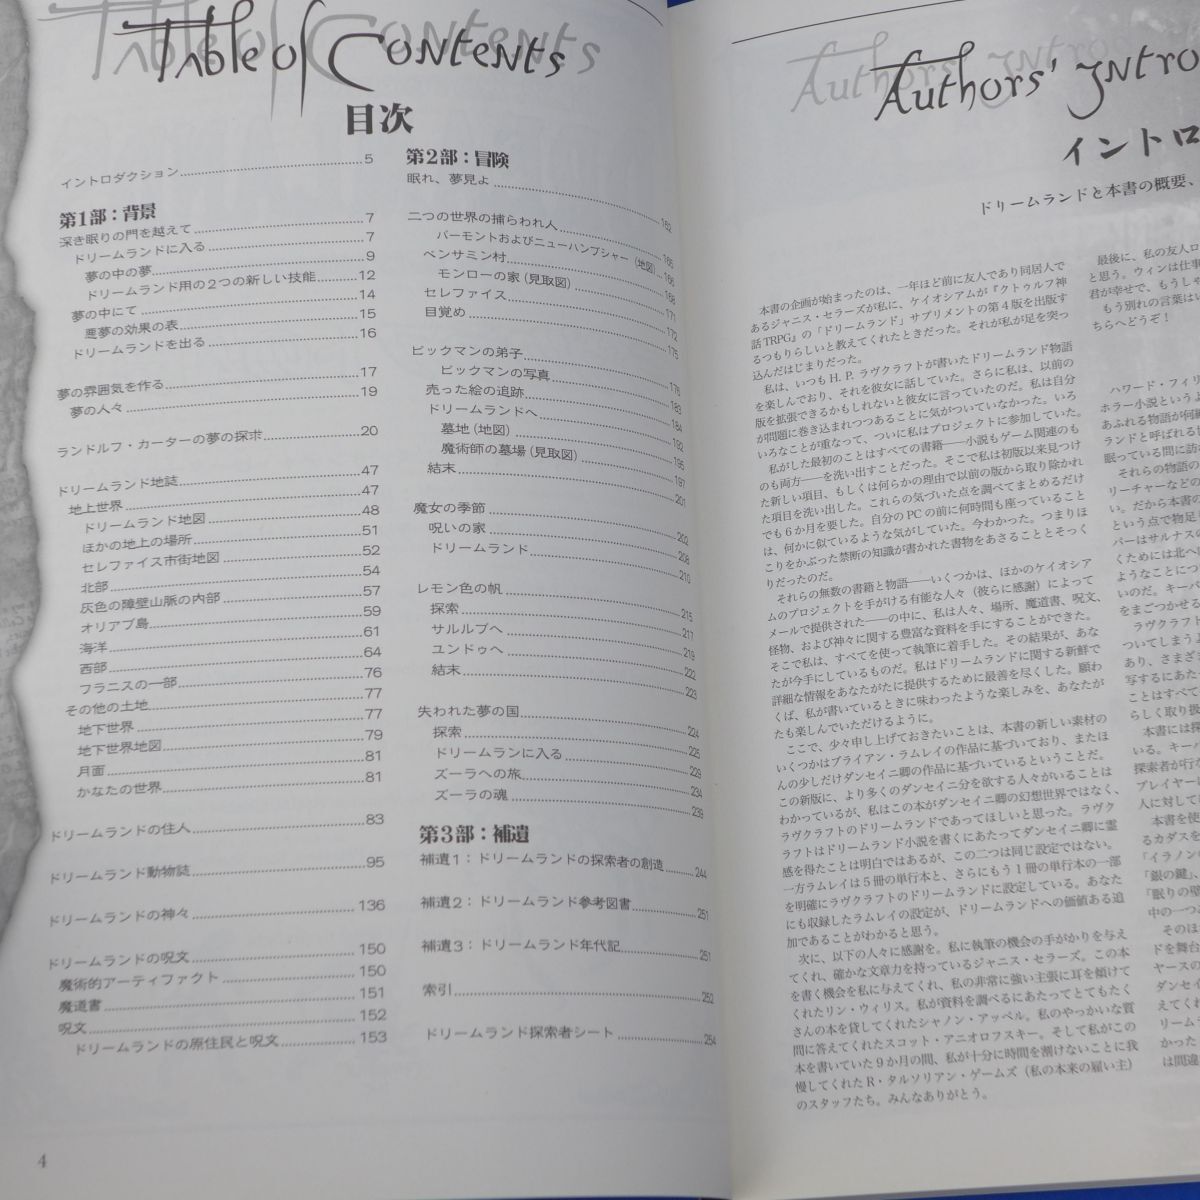 Table of Contents
目次
イントロダクション 5
第1部：背景
深き眠りの門を越えて 7
ドリームランドに入る 7
夢の中の夢 9
ドリームランド用の２つの新しい技能 12
夢の中にて 14
悪夢の効果の表 15
ドリームランドを出る 16
夢の雰囲気を作る 17
夢の人々 19
ランドルフ・カーターの夢の探求 20
ドリームランド地誌 47
地上世界 47
ドリームランド地図 48
ほかの地上の場所 51
セレファイス市街地図 52
北部 54
灰色の障壁山脈の内部 57
オリアブ島 59
海洋 61
西部 64
フラニスの一部 76
その他の土地 77
地下世界 77
地下世界地図 79
月面 81
かなたの世界 81
ドリームランドの住人 83
ドリームランド動物誌 95
ドリームランドの神々 136
ドリームランドの呪文 150
魔術的アーティファクト 150
魔道書 151
呪文 152
ドリームランドの原住民と呪文 153
4
第2部：冒険
眠れ、夢見よ 162
二つの世界の捕らわれ人
バーモントおよびニューハンプシャー（地図） 165
ベンサミン村 166
モンローの家（見取図） 168
セレファイス 171
目覚め 172
175
ピックマンの弟子 176
ピックマンの写真 183
売った絵の追跡 184
ドリームランドへ 192
墓地（地図） 195
魔術師の墓場（見取図） 197
結末 201
魔女の季節 202
呪いの家 208
ドリームランド 210
レモン色の帆 215
探索 217
サルルブへ 219
ユンドゥへ 222
結末 223
失われた夢の国 224
探索 225
ドリームランに入る 229
ズーラへの旅 234
ズーラの魂 239
第3部：補遺
補遺1：ドリームランドの探索者の創造 244
補遺2：ドリームランド参考図書 251
補遺3：ドリームランド年代記 251
索引 252
ドリームランド探索者シート 254
Authors' Intro
イントロ
ドリームランドと本書の概要、
本書の企画が始まったのは、一年ほど前に友人であり同居人で
あるジャニス・セラーズが私に、ケイオシアムが『クトゥルフ神
話TRPG』の「ドリームランド」サプリメントの第4版を出版す
るつもりらしいと教えてくれたときだった。それが私が足を突っ
込んだはじまりだった。
私は、いつも H. P. ラヴクラフトが書いたドリームランド物語
を楽しんでおり、それを彼女に話していた。さらに私は、以前の
版を拡張できるかもしれないと彼女に言っていたのだ。私は自分
が問題に巻き込まれつつあることに気がついていなかった。いろ
いろなことが重なって、ついに私はプロジェクトに参加していた。
私がした最初のことはすべての書籍――小説もゲーム関連のも
のも両方――を洗い出すことだった。そこで私は初版以来見つけ
た新しい項目、もしくは何らかの理由で以前の版から取り除かれ
た項目を洗い出した。これらの気づいた点を調べてまとめるだけ
でも6か月を要した。自分のPCの前に何時間も座っていること
は、何かに似ているような気がしていた。今わかった。つまりほ
こりをかぶった禁断の知識が書かれた書物をあさることとそっく
りだったのだ。
それらの無数の書籍と物語――いくつかは、ほかのケイオシア
ムのプロジェクトを手がける有能な人々（彼らに感謝）によって
メールで提供された――の中に、私は人々、場所、魔道書、呪文、
怪物、および神々に関する豊富な資料を手にすることができた。
そこで私は、すべてを使って執筆に着手した。その結果が、あな
たが今手にしているものだ。私はドリームランドに関する新鮮で
詳細な情報をあなたがたに提供するために最善を尽くした。願わ
くば、私が書いているときに味わったような楽しみを、あなたが
たも楽しんでいただけるように。
ここで、少々申し上げておきたいことは、本書の新しい素材の
いくつかはブライアン・ラムレイの作品に基づいており、またほ
んの少しだけダンセイニ卿の作品に基づいているということだ。
この新版に、より多くのダンセイニ分を欲する人々がいることは
わかっているが、私はこの本がダンセイニ卿の幻想世界ではなく、
ラヴクラフトのドリームランドであってほしいと思った。ラヴク
ラフトはドリームランド小説を書くにあたってダンセイニ卿に霊
感を得たことは明白ではあるが、この二つは同じ設定ではない。
一方ラムレイは5冊の単行本と、さらにもう1冊の単行本の一部
を明確にラヴクラフトのドリームランドに設定している。あなた
にも収録したラムレイの設定が、ドリームランドへの価値ある追
加であることがわかると思う。
次に、以下の人々に感謝を。私に執筆の機会の手がかりを与え
てくれ、確かな文章力を持っているジャニス・セラーズ。この本
を書く機会を私に与えてくれ、私の非常に強い主張に耳を傾けて
くれたリン・ウィリス。私が資料を調べるにあたってとてもたく
さんの本を貸してくれたシャノン・アッペル。私のやっかいな質
問に答えてくれたスコット・アニオロフスキー。そして私がこの
本を書いていた9か月の間、私が十分に時間を割けないことに我
慢してくれたR・タルソリアン・ゲームズ（私の本来の雇い主）
のスタッフたち。みんなありがとう。
最後に、私の友人ロ
と思う。ウィンは仕事
君が幸せで、もうしゃ
もう別れの言葉はい
ちらへどうぞ！
ハワード・フィリ
ホラー小説というよ
あふれる物語が何編
ランドと呼ばれる世
眠っている間に訪
それらの物語の
リーチャーなどの
い。だから本書の
という点で物足
バーはサルナスの
くためには北へ
ようなことにつ
いのだ。キーパ
をまごつかせる
ラヴクラフト
ついてしまう
あり、さまざま
写するにあた
ことはすべて
らしく取り扱
本書には探
いる。キーパ
探索者が行な
プレイヤー
人に対して
本書を使
るカダスを
「イラノン
「銀の鍵」、
「眠りの壁
中の一つ
そのほ
ドを舞台
ヤースの
ダンセイ
えてくれ
リームラ
かった
は間違